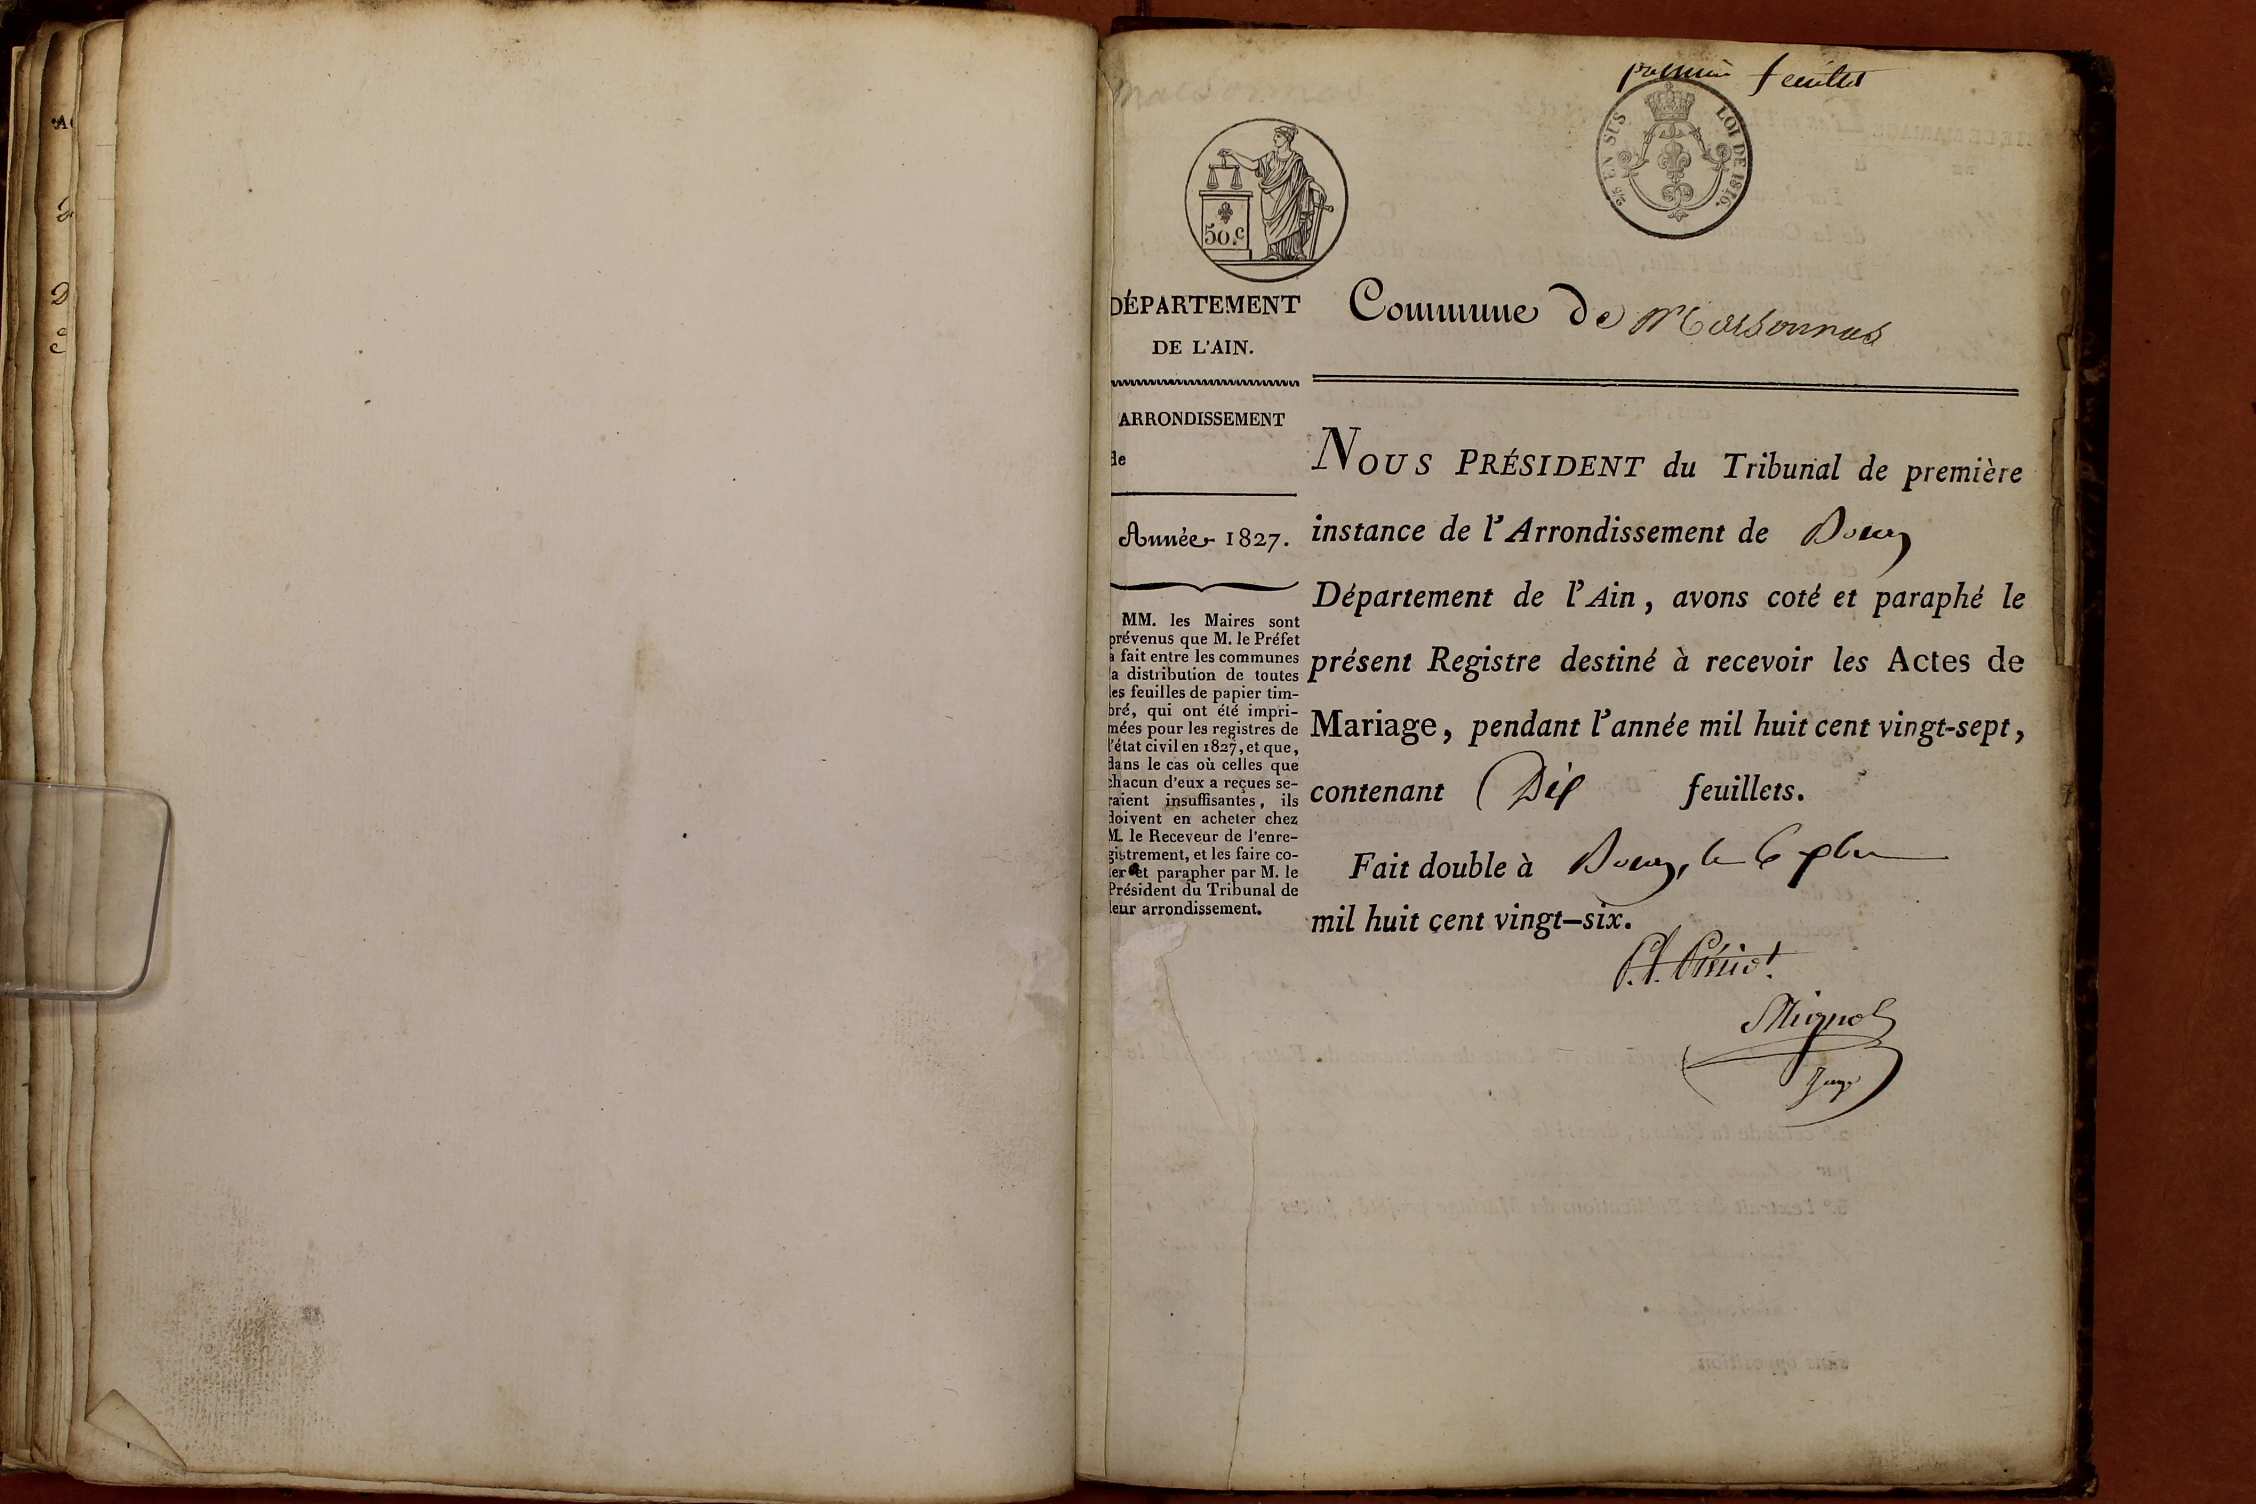 premier feuillet
Maisonnas
2/5 EN SUS
LOI DE 1816.
50.c
DÉPARTEMENT
DE L'AIN.
Commune de
ARRONDISSEMENT
de
Année 1827.
MM. les Maires sont
prévenus que M. le Préfet
a fait entre les communes
la distribution de toutes
les feuilles de papier tim-
bré, qui ont été impri-
mées pour les registres de
l'état civil en 1827, et que,
dans le cas où celles que
chacun d'eux a reçues se-
raient insuffisantes, ils
doivent en acheter chez
M. le Receveur de l'enre-
gistrement, et les faire co-
ter et parapher par M. le
Président du Tribunal de
leur arrondissement.
NOUS PRÉSIDENT du Tribunal de première
instance de l'Arrondissement de Bourg
Département de l'Ain, avons coté et paraphé le
présent Registre destiné à recevoir les Actes de
Mariage, pendant l'année mil huit cent vingt-sept,
contenant Dix feuillets.
Fait double à Bourg, le 6 xbre
mil huit cent vingt-six.
Mignot
Juge